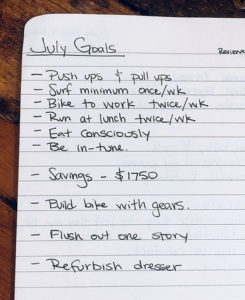 July Goals
- Push ups & pull ups
- Surf minimum once/wk
- Bike to work twice/wk
- Run at lunch twice/wk
- Eat consciously
- Be in-tune.
- Savings - $1750
- Build bike with gears.
- Flush out one story
- Refurbish dresser